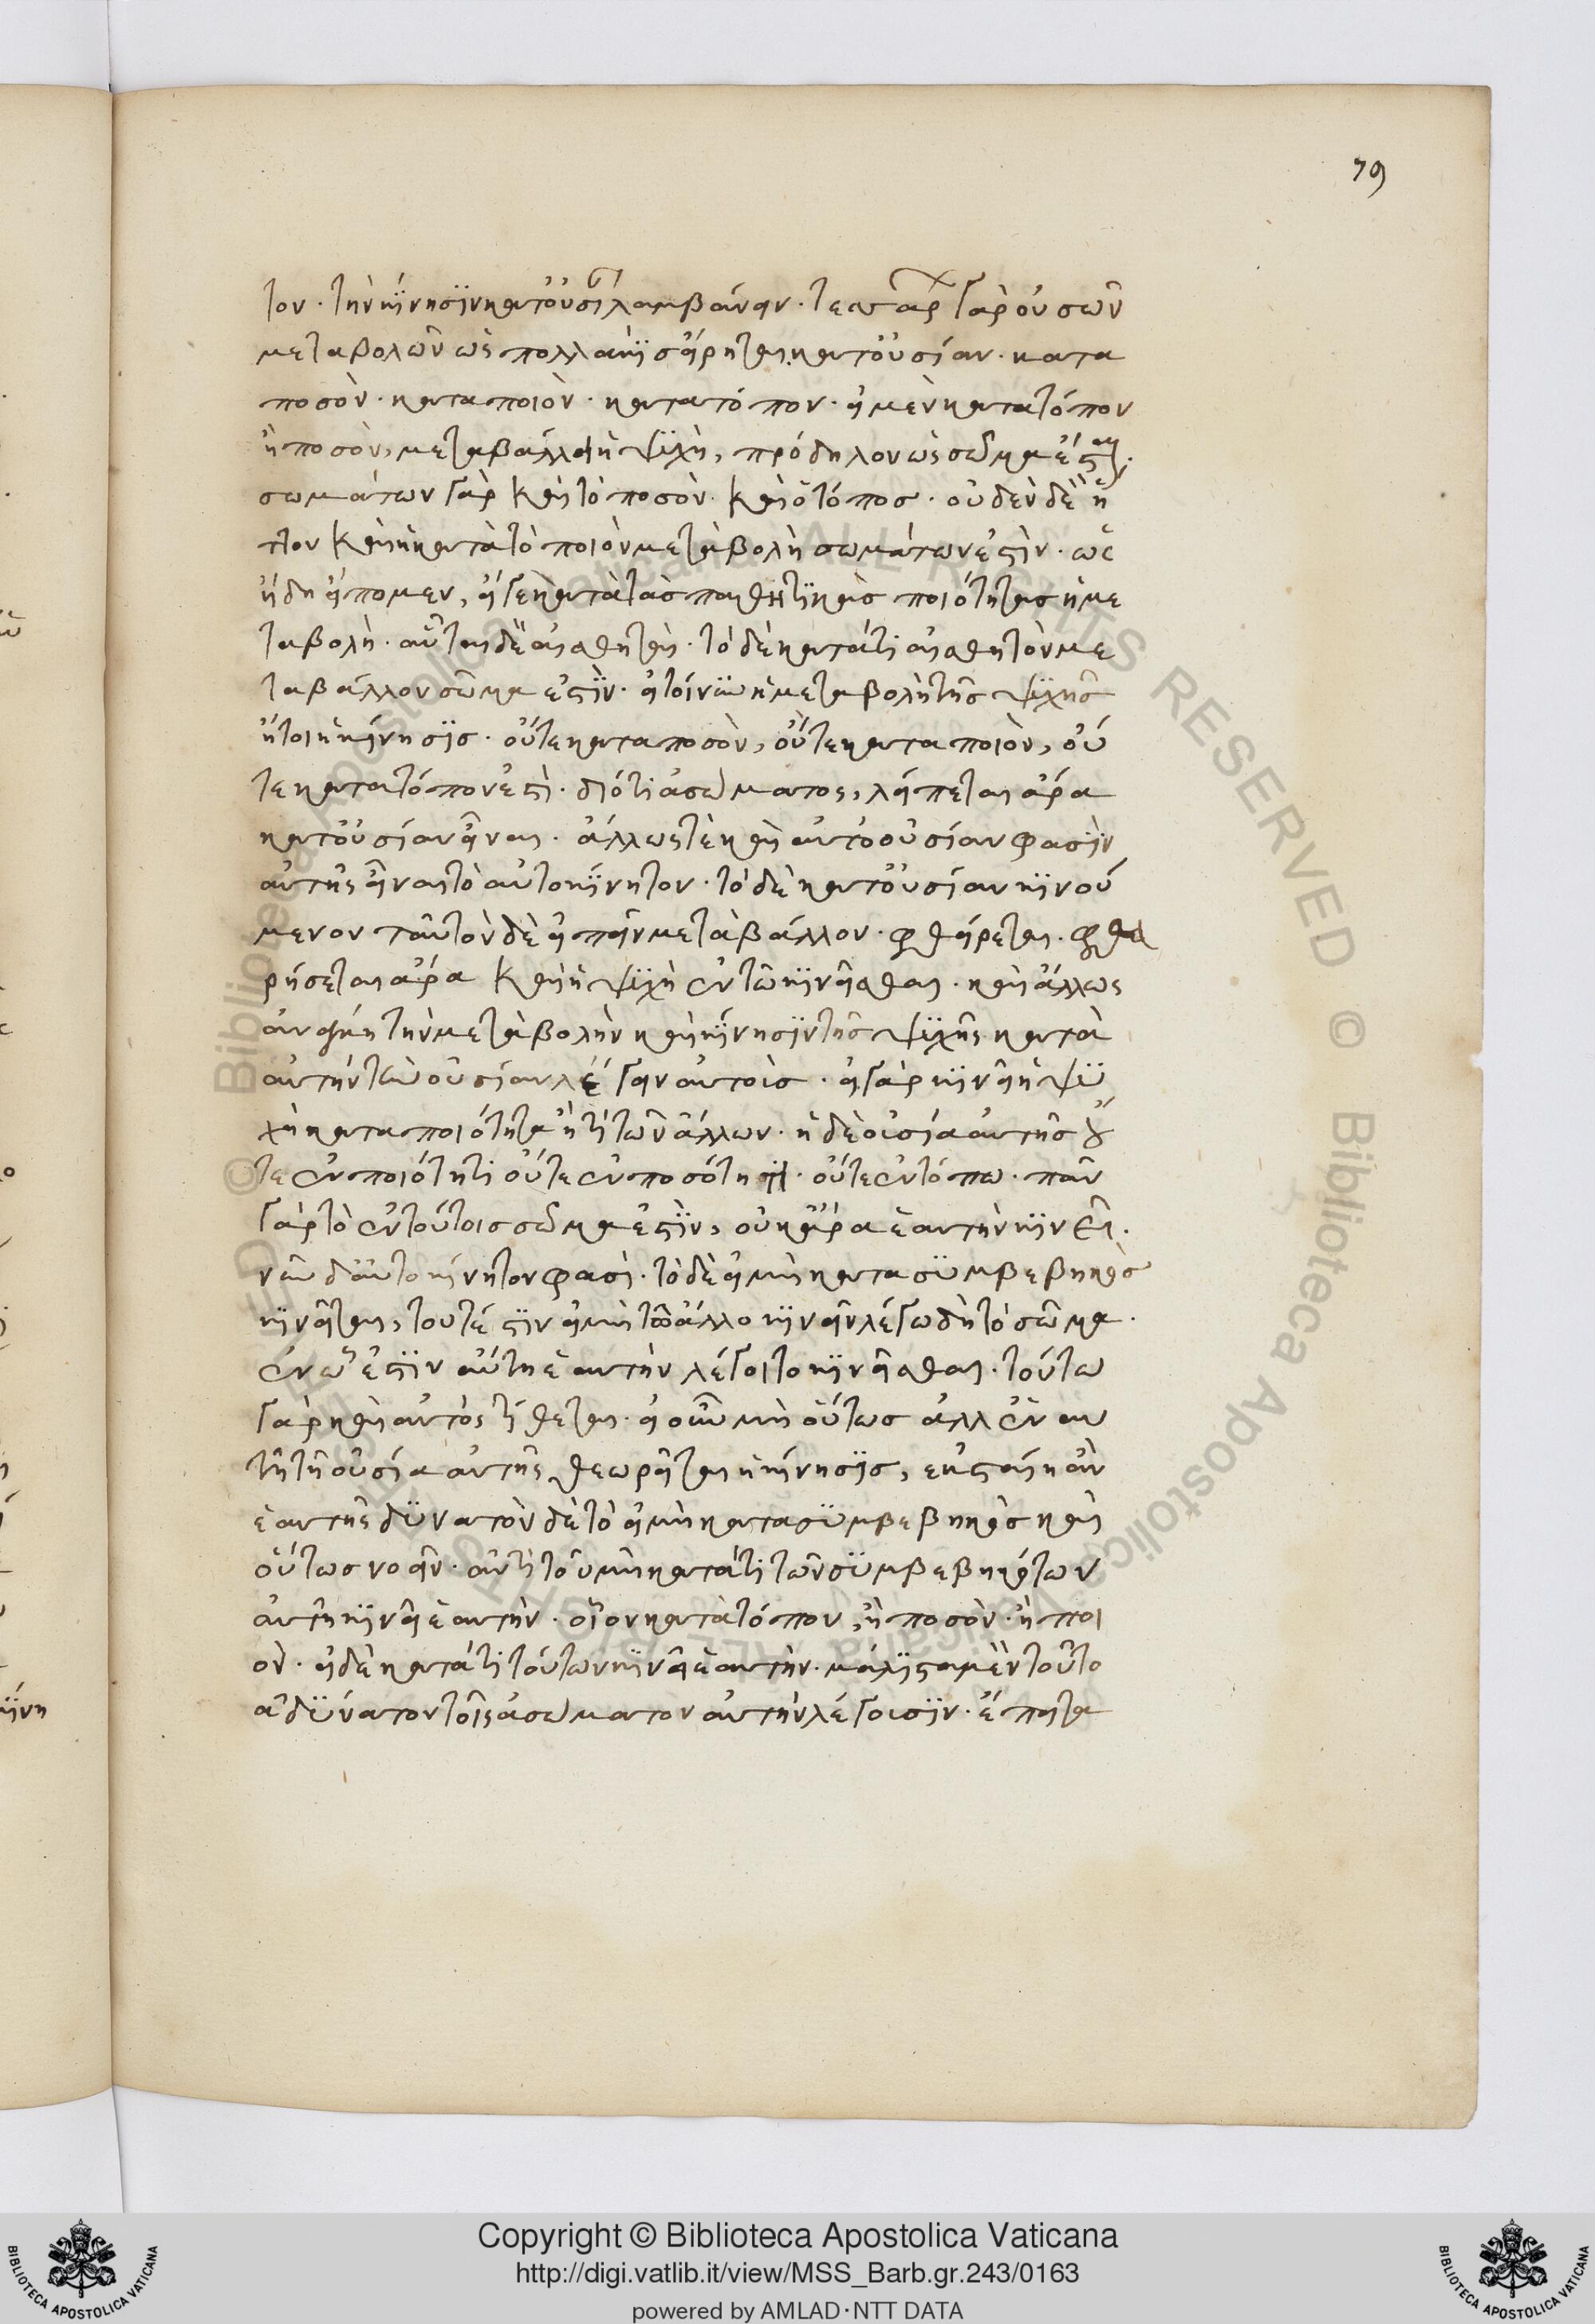 79
τον· τὴν κίνησιν κατ' οὐσίαν λαμβάνειν· τεσσάρων γὰρ οὐσῶν
μεταβολῶν ὡς πολλάκις εἴρηται, κατ' οὐσίαν· κατα
ποσὸν· κατα ποιὸν· κατα τόπον· εἰ μὲν κατα τόπον
ἢ ποσὸν, μεταβάλλει ἡ ψυχὴ, πρόδηλον ὡς σῶμα ἔσται·
σωμάτων γὰρ καὶ τὸ ποσὸν· καὶ ὁ τόπος· οὐδὲν δὲ ἧ
ττον καὶ ἡ κατὰ τὸ ποιὸν μεταβολὴ σωμάτων ἐστὶν· ὡς
ἤδη εἴπομεν, εἴγε κατὰ τὰς παθητικὰς ποιότητας ἡ με
ταβολὴ· αὗται δὲ αἰσθηταὶ· τὸ δὲ κατά τι αἰσθητὸν με
ταβάλλον σῶμα ἐστὶν· εἰ τοίνυν ἡ μεταβολὴ τῆς ψυχῆς
ἤτοι ἡ κίνησις· οὔτε κατα ποσὸν, οὔτε κατα ποιὸν, οὔ
τε κατα τόπον ἐστὶ· διότι ἀσώματος, λείπεται ἄρα
κατ' οὐσίαν εἶναι· ἄλλως τὲ καὶ αὐτοουσίαν φασὶν
αὐτῆς εἶναι τὸ αὐτοκίνητον· τὸ δὲ κατ' οὐσίαν κινού
μενον ταὐτὸν δὲ εἰπεῖν μεταβάλλον· φθείρεται· φθα
ρήσεται ἄρα καὶ ἡ ψυχὴ ἐν τῶ κινεῖσθαι· καὶ ἄλλως
ἀνάγκη τὴν μεταβολὴν καὶ κίνησιν τῆς ψυχῆς κατὰ
αὐτὴν τὴν οὐσίαν λέγειν αὐτοῖς· εἰ γὰρ κινεῖ ἡ ψυ
χὴ κατα ποιότητα ἤ τι τῶν ἄλλων· ἡ δὲ οὐσία αὐτῆς οὔ
τε ἐν ποιότητι οὔτε ἐν ποσότητι· οὔτε ἐν τόπω· πᾶν
γὰρ τὸ ἐν τούτοις σῶμα ἐστὶν, οὐκ ἄρα ἑαυτὴν κινεῖ·
νῦν δ' αὐτοκίνητον φασὶ· τὸ δὲ εἰ μὴ κατα συμβεβηκὸς
κινεῖται, τουτέστιν εἰ μὴ τῶ ἄλλο κινεῖν λέγω δὴ τὸ σῶμα·
ἐν ὧ ἐστὶν αὕτη ἑαυτὴν λέγοιτο κινεῖσθαι· τούτω
γὰρ καὶ αὐτὸς τίθεται· εἰ οὖν μὴ οὕτως ἀλλ' ἐν αυ
τῆ τῆ οὐσία αὐτῆς θεωρεῖται ἡ κίνησις, εκσταίη ἂν
ἑαυτῆς δυνατὸν δὲ τὸ εἰ μὴ κατα συμβεβηκὸς καὶ
οὕτως νοεῖν· ἀντὶ τοῦ μὴ κατά τι τῶν συμβεβηκότων
αὐτῆ κινεῖ ἑαυτὴν· οἷον κατὰ τόπον, ἢ ποσὸν· ἢ ποι
ὸν· εἰ δὲ κατά τι τούτων κινεῖ ἑαυτὴν· μάλιστα μὲν τοῦτο
ἀδύνατον τοῖς ἀσώματον αὐτὴν λέγουσιν· ἔπειτα
Copyright © Biblioteca Apostolica Vaticana
http://digi.vatlib.it/view/MSS_Barb.gr.243/0163
powered by AMLAD·NTT DATA